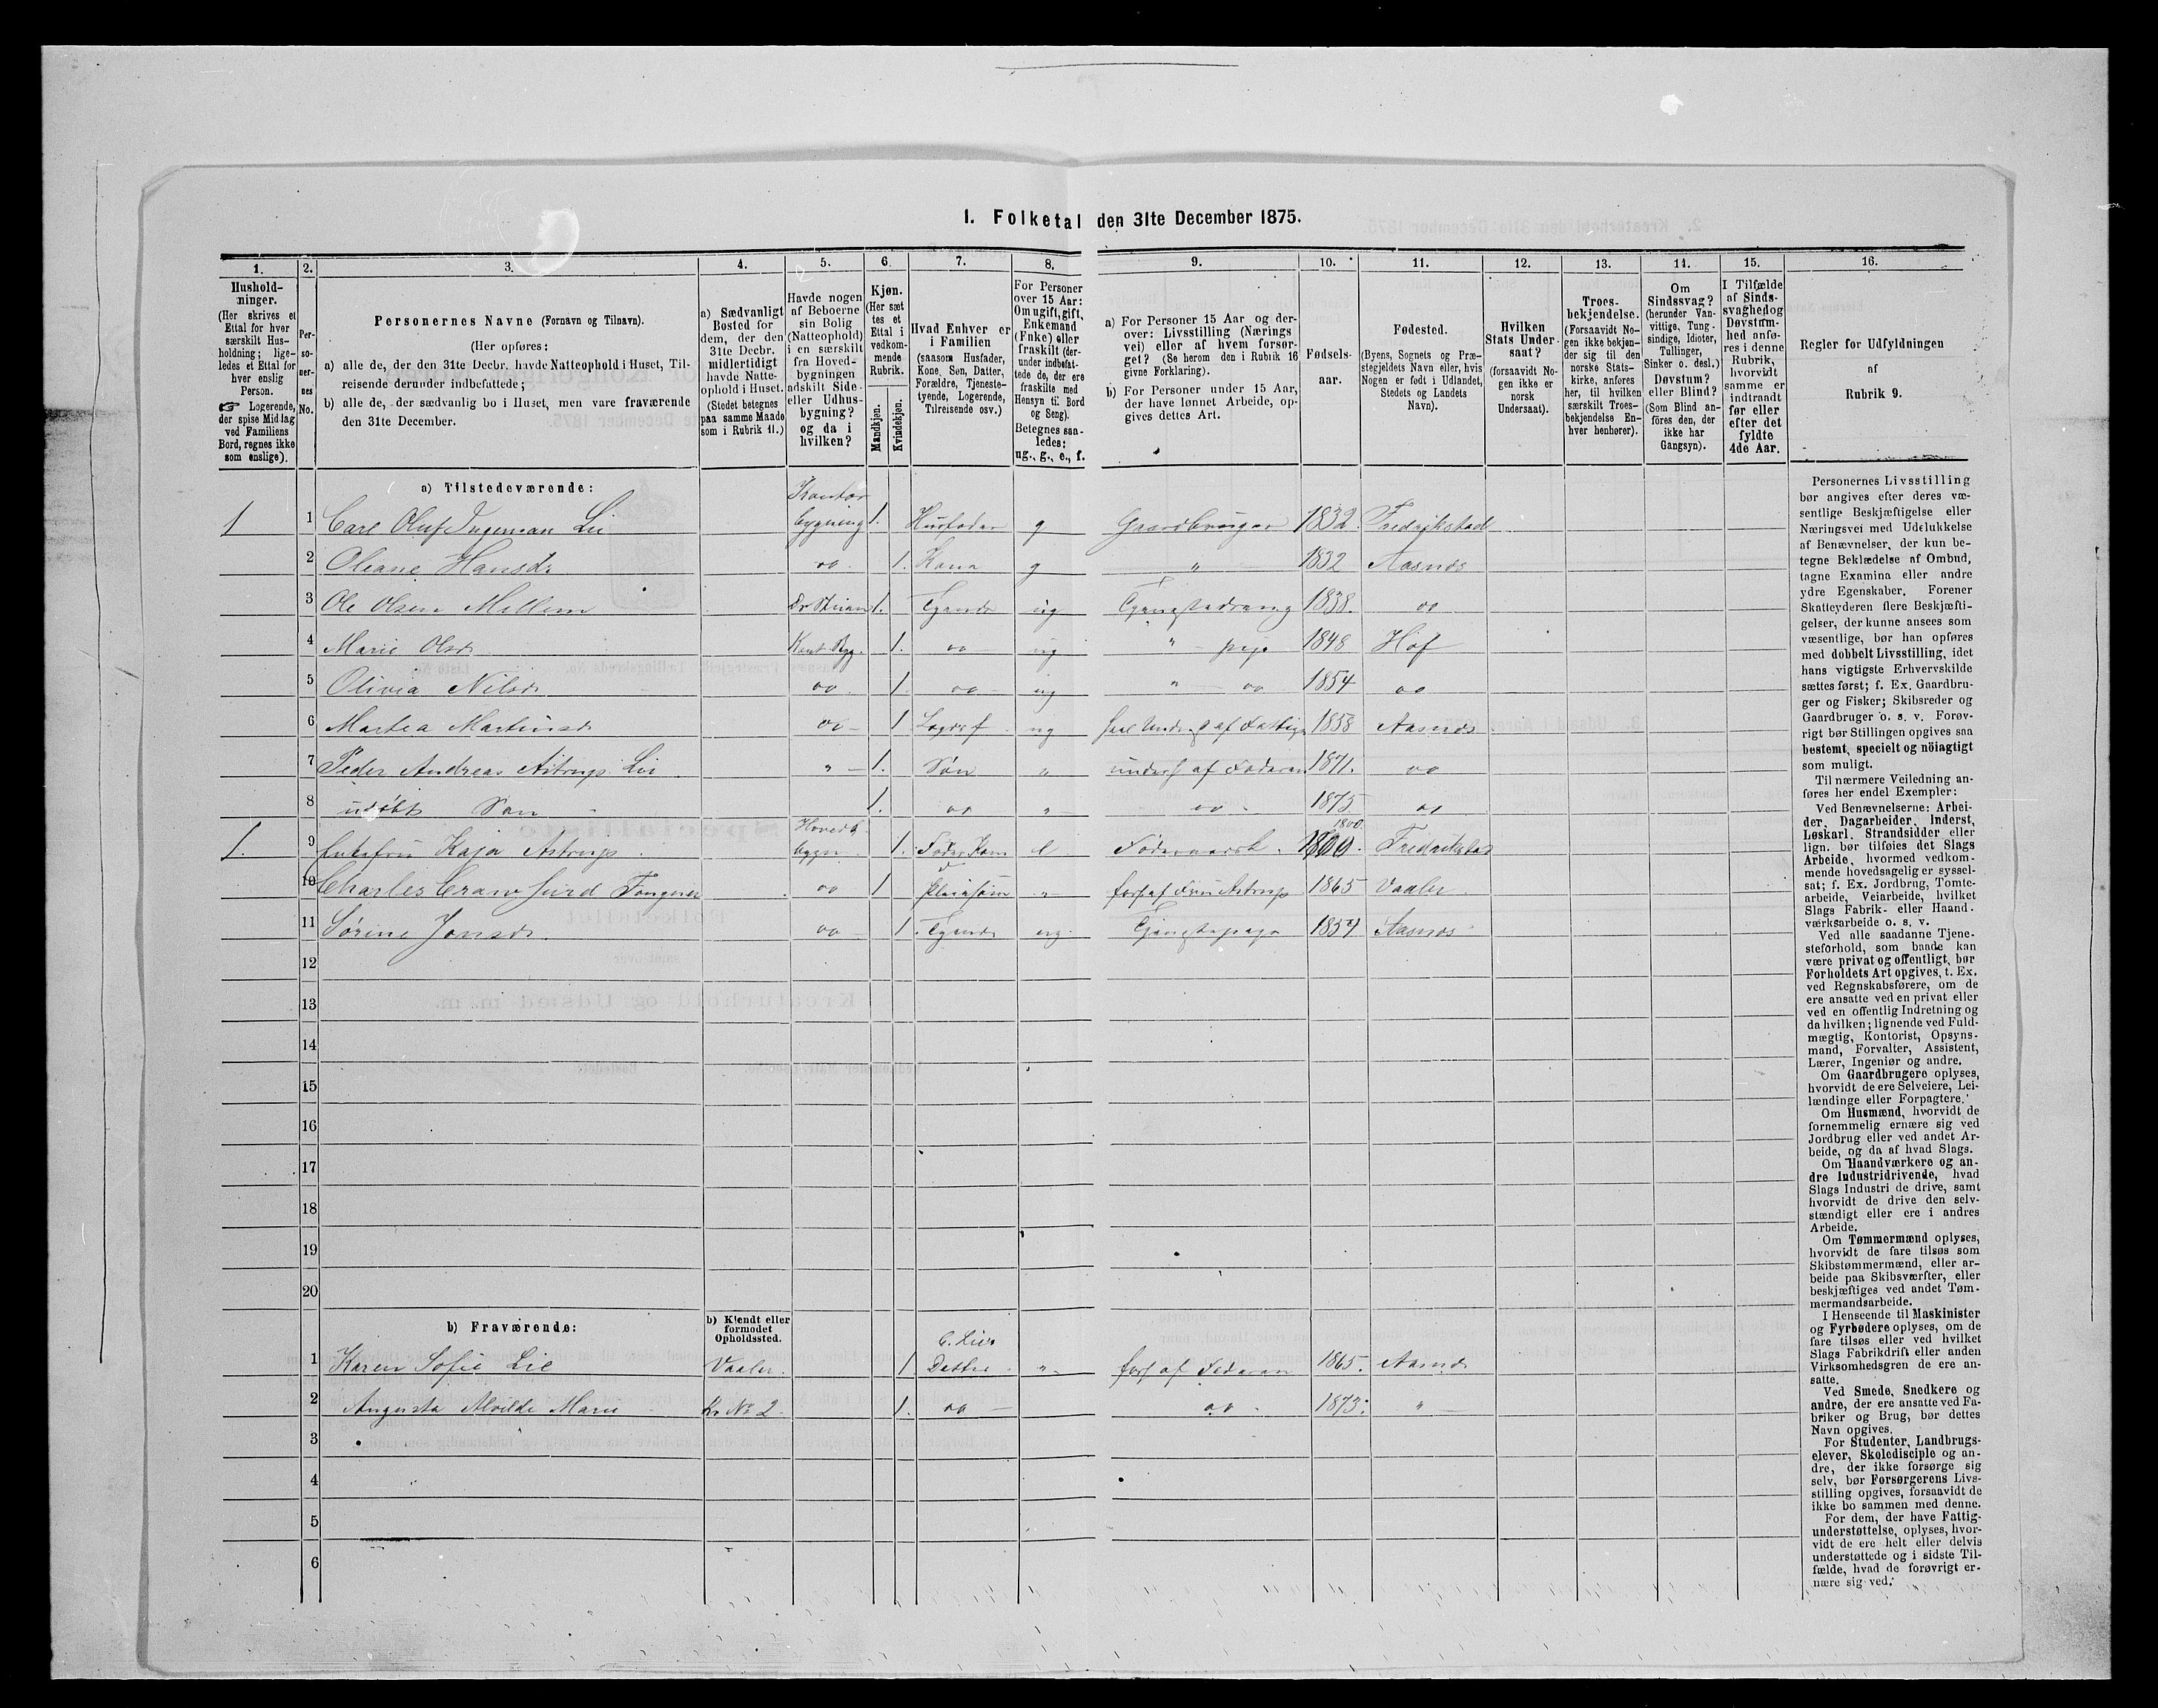 1. Folketal den 31te December 1875.
1. 2. 3. 4. 5. 6. 7. 8. 9. 10. 11. 12. 13. 14. 15. 16.
Hushold-
ninger.
(Her skrives et
Ettal for hver
særskilt Hus-
holdning; lige-
ledes et Ettal for
hver enslig
Person.
☞ Logerende,
der spise Middag
ved Familiens
Bord, regnes ikke
som enslige).
Per-
so-
ner-
nes
No.
Personernes Navne (Fornavn og Tilnavn).
(Her opføres:
a) alle de, der den 31te Decbr. havde Natteophold i Huset, Til-
reisende derunder indbefattede;
b) alle de, der sædvanlig bo i Huset, men vare fraværende
den 31te December.
a) Sædvanligt
Bosted for
dem, der den
31te Decbr.
midlertidigt
havde Natte-
ophold i Huset.
(Stedet betegnes
paa samme Maade
som i Rubrik 11.)
Havde nogen
af Beboerne
sin Bolig
(Natteophold)
i en særskilt
fra Hoved-
bygningen
adskilt Side-
eller Udhus-
bygning?
og da i
hvilken?
Kjøn.
(Her sæt
tes et
Ettal i
vedkom-
mende
Rubrik.
Mandkjøn.
Kvindekjøn.
Hvad Enhver er
i Familien
(saasom Husfader,
Kone, Søn, Datter,
Forældre, Tjeneste-
tyende, Logerende,
Tilreisende osv.)
For Personer
over 15 Aar:
Om ugift, gift,
Enkemand
(Enke) eller
fraskilt (der-
under indbefat-
tede de, der ere
fraskilte med
Hensyn til Bord
og Seng).
Betegnes saa-
ledes:
ug., g., e., f.
a) For Personer 15 Aar og der-
over: Livsstilling (Nærings
vei) eller af hvem forsør-
get? (Se herom den i Rubrik 16
givne Forklaring).
b) For Personer under 15 Aar,
der have lønnet Arbeide, op-
gives dettes Art.
Fødsels-
aar.
Fødested.
(Byens, Sognets og Præ-
stegjeldets Navn eller, hvis
Nogen er født i Udlandet,
Stedets og Landets
Navn).
Hvilken
Stats Under-
saat?
(forsaavidt No-
gen ikke er
norsk
Undersaat).
Troes-
bekjendelse.
(Forsaavidt No-
gen ikke bekjen-
der sig til den
norske Stats-
kirke, anføres
her, til hvilken
særskilt Troes-
bekjendelse En-
hver henhører).
Om
Sindssvag?
(herunder Van-
vittige, Tung-
sindige, Idioter,
Tullinger,
Sinker o. desl.)
Døvstum?
eller Blind?
(Som Blind an-
föres den, der
ikke har
Gangsyn).
I Tilfælde
af Sinds-
svaghed og
Døvstum-
hed anfø-
res i denne
Rubrik,
hvorvidt
samme er
indtraadt
før eller
efter det
fyldte
4de Aar.
Regler for Udfyldningen
af
Rubrik 9.
a) Tilstedeværende:
Kontor
1 1 Carl Oluf Ingeman Lie bygning 1. Husfader g Gaardbruger 1832. Fredrikstad
2 Oleane Hansdr oo 1. Kone g " 1832 Aasnes
3 Ole Olsen Mellem 1. Tyende ug 1838. oo
4 Marie Olsdr Kont Byg. 1. oo ug " pige 1848 Hof
5 Olivia Nilsdr oo 1. oo ug " oo 1854 oo
6 Martea Martinsdr oo 1 Lægdsf ug 1858 Aasnes
7 Peder Andreas Astrup Lie " 1. Søn " underh af Faderen 1871. oo
8 udøbt Søn 1. oo " oo 1875 oo
Hovedb 1800
1. 9 Enkefru Kaja Astrup bygn 1. e Føderaad 1800. Fredrikstad
10 Charles Crawfurd oo 1 Pleiesøn " fors af Fru Astrup 1865 Vaaler
11 Sørine Jonsdr oo 1. Tyende ug Tjenestepige 1854 Aasnes
12
13
14
15
16
17
18
19
20
b) Fraværende:
b) Kjendt eller
formodet
Opholdssted.
C. Lies
1 Karen Sofie Lie Vaaler. 1 Datter " fors af Faderen 1865. Aasnes
2 Augusta Alvilde Marie Kr No 2 1. oo oo 1873. "
3
4
5
6
Personernes Livsstilling
bør angives efter deres væ-
sentlige Beskjæftigelse eller
Næringsvei med Udelukkelse
af Benævnelser, der kun be-
tegne Beklædelse af Ombud,
tagne Examina eller andre
ydre Egenskaber. Forener
Skatteyderen flere Beskjæfti-
gelser, der kunne ansees som
væsentlige, bør han opføres
med dobbelt Livsstilling, idet
hans vigtigste Erhvervskilde
sættes først; f. Ex. Gaardbru-
ger og Fisker; Skibsreder og
Gaardbruger o. s. v. Forøv-
rigt bør Stillingen opgives saa
bestemt, specielt og nöiagtigt
som muligt.
Til nærmere Veiledning an-
føres her endel Exempler:
Ved Benævnelserne: Arbei-
der, Dagarbeider, Inderst,
Løskarl, Strandsidder eller
lign. bør tilføies det Slags
Arbeide, hvormed vedkom-
mende hovedsagelig er syssel-
sat; f. Ex. Jordbrug, Tomte-
arbeide, Veiarbeide, hvilket
Slags Fabrik- eller Haand-
værksarbeide o. s. v.
Ved alle saadanne Tjene-
steforhold, som baade kan
være privat og offentligt, bør
Forholdets Art opgives, t. Ex.
ved Regnskabsførere, om de
ere ansatte ved en privat eller
ved en offentlig Indretning og
da hvilken; lignende ved Fuld-
mægtig, Kontorist, Opsyns-
mand, Forvalter, Assistent,
Lærer, Ingeniør og andre.
Om Gaardbrugere oplyses,
hvorvidt de ere Selveiere, Lei-
lændinge eller Forpagtere.
Om Husmænd, hvorvidt de
fornemmelig ernære sig ved
Jordbrug eller ved andet Ar-
beide, og da af hvad Slags.
Om Haandværkere og an-
dre Industridrivende, hvad
Slags Industri de drive, samt
hvorvidt de drive den selv-
stændigt eller ere i andres
Arbeide.
Om Tømmermænd oplyses,
hvorvidt de fare tilsøs som
Skibstømmermænd, eller ar-
beide paa Skibsværfter, eller
beskjæftiges ved andet Tøm-
mermandsarbeide.
I Henseende til Maskinister
og Fyrbødere oplyses, om de
fare tilsøs eller ved hvilket
Slags Fabrikdrift eller anden
Virksomhedsgren de ere an-
satte.
Ved Smede, Snedkere og
andre, der ere ansatte ved Fa-
briker og Brug, bør dettes
Navn opgives.
For Studenter, Landbrugs-
elever, Skoledisciple og an-
dre, der ikke forsørge sig
selv, bør Forsørgerens Livs-
stilling opgives, forsaavidt de
ikke bo sammen med denne.
For dem, der have Fattig-
understøttelse, oplyses, hvor-
vidt de ere helt eller delvis
understøttede og i sidste Til-
fælde, hvad de forøvrigt er-
nære sig ved.